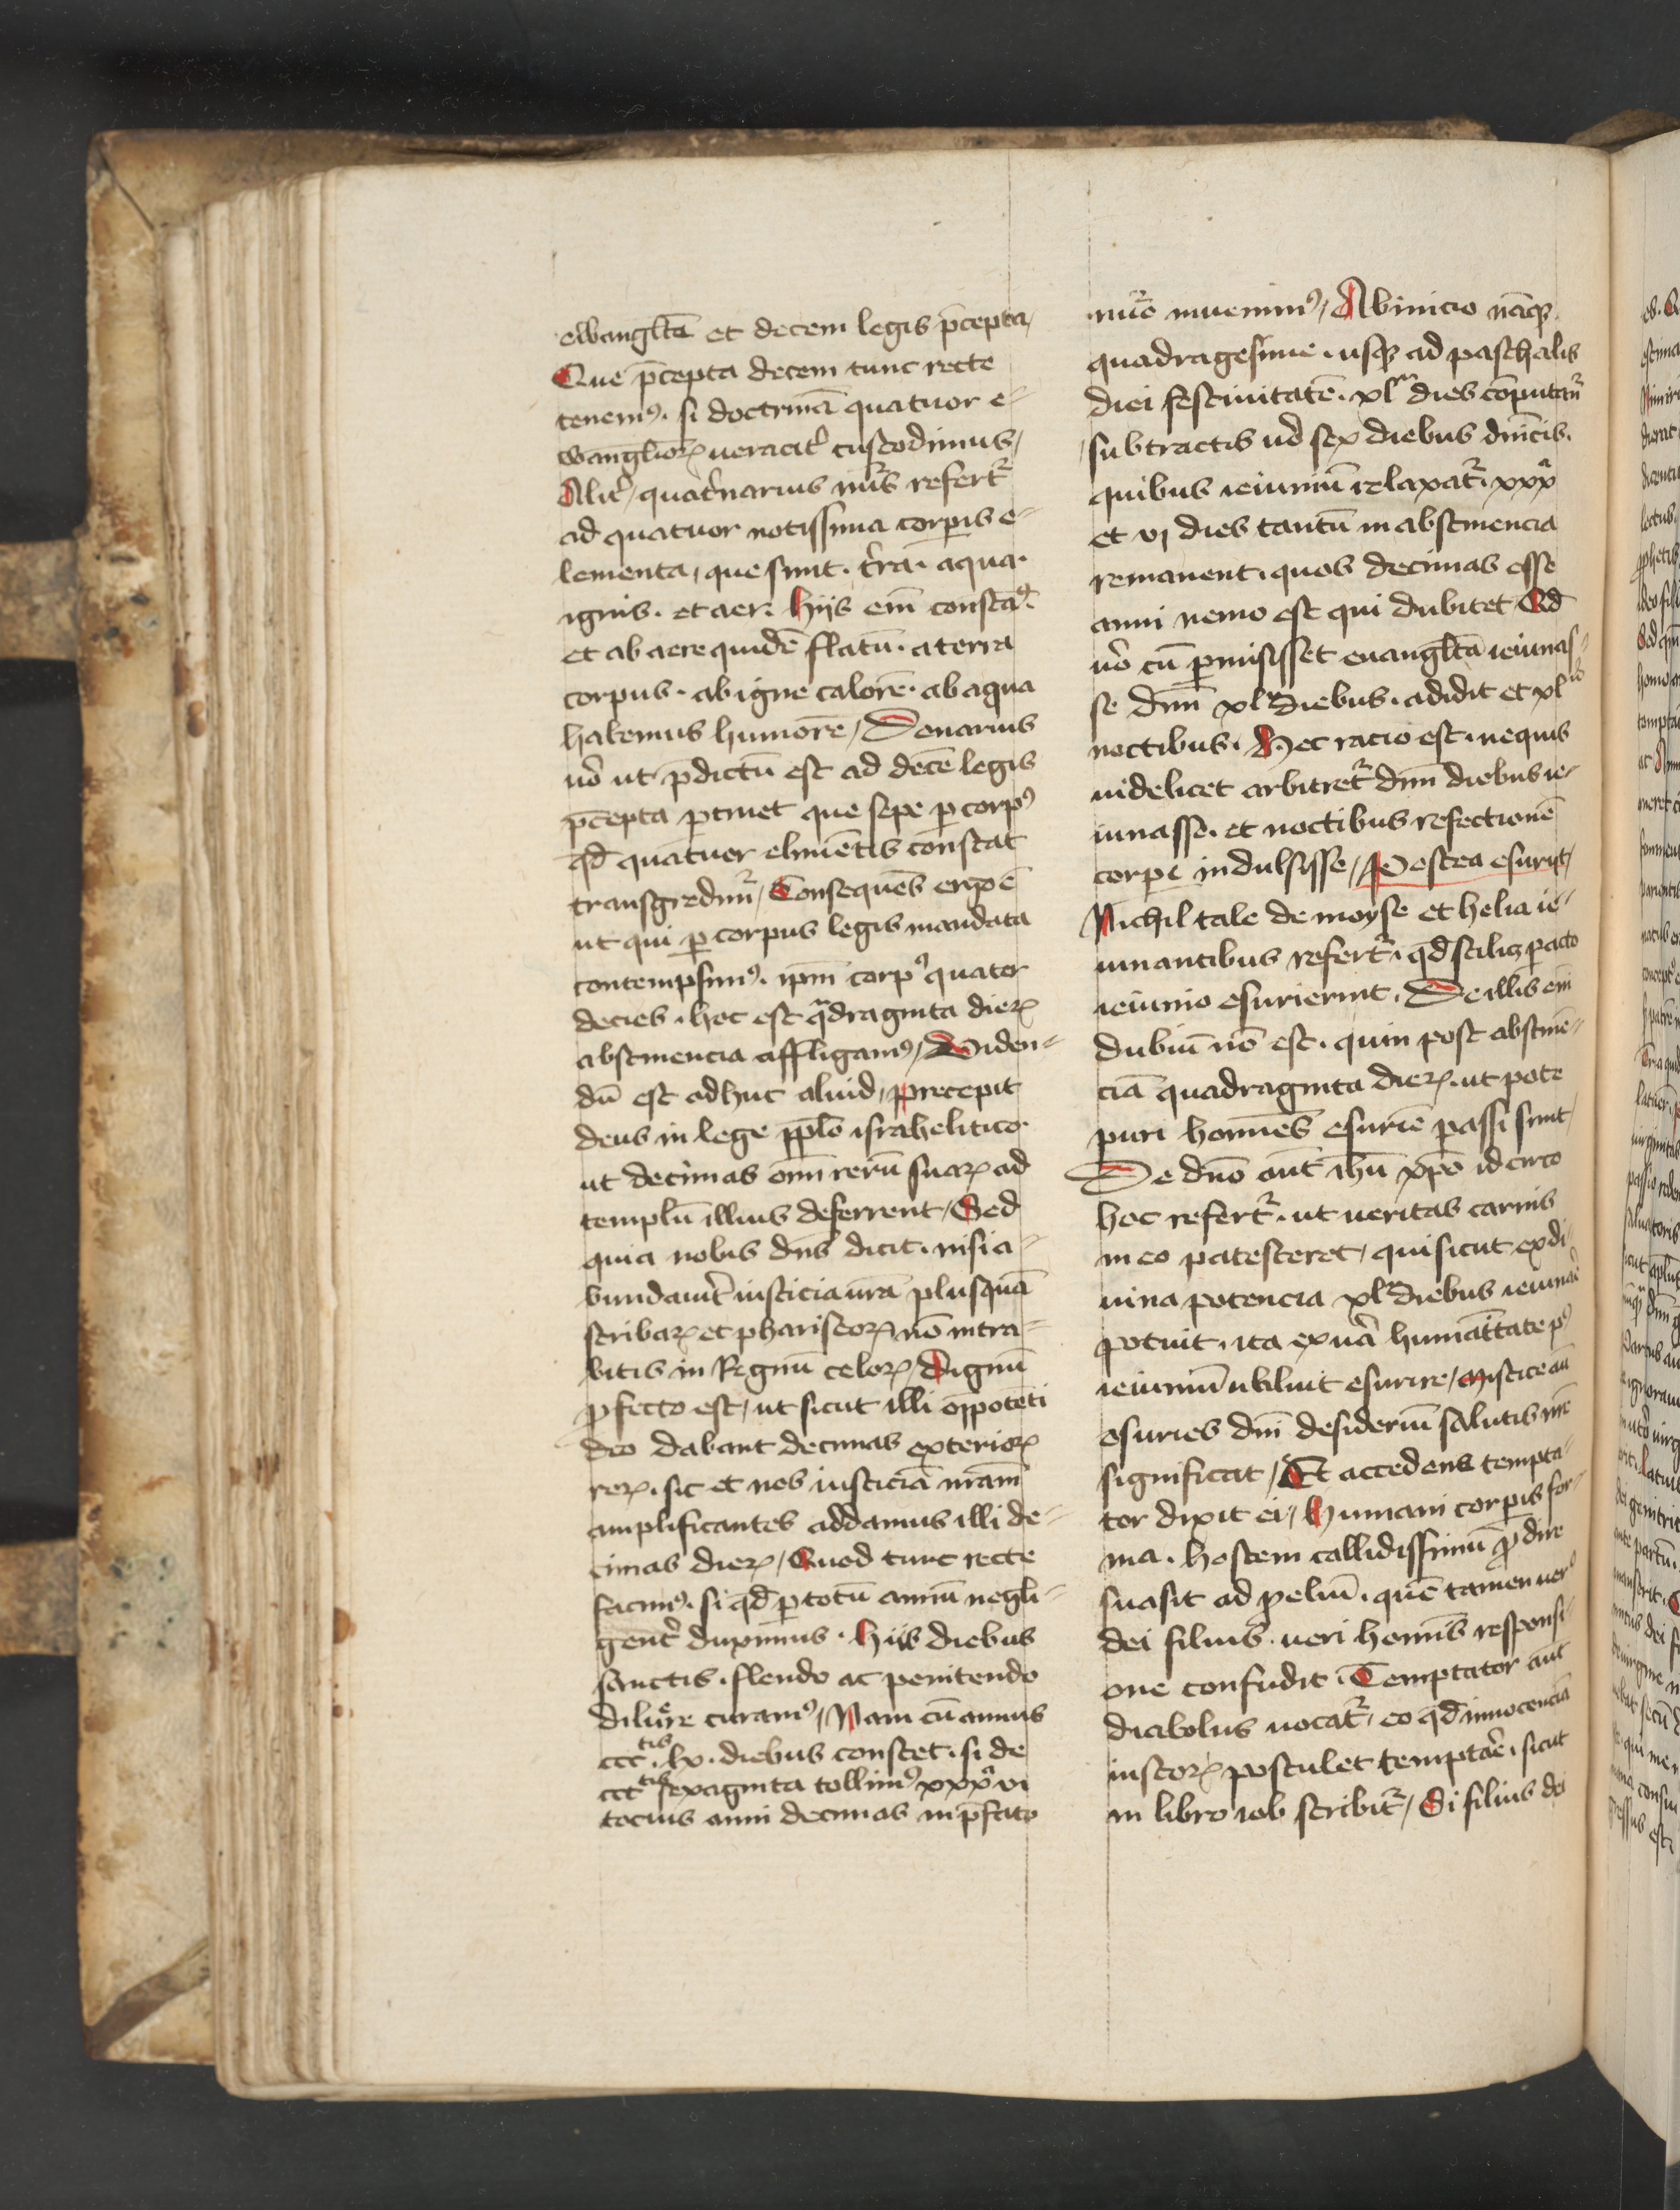 ewangl̄ia et decem legis p̄cepta/
Que p̄cepta decem tunc recte
tenemꝰ. si doctrinā quatuor e-
wāngl̄ioꝝ ueracit̾ custodimus/
Alit̾/ quat̾narius nūs refert᷑
ad quatuor notissima corꝑis e-
lementa/ que sunt. t̾ra. aqua.
ignis. et aer. hijs em̄ constaꝰ.
et ab aere quidē flatū. a terra
corpus. ab igne calorē. ab aqua
habemus humorē/ Denarius
u̾o ut p̄dictū est ad decē legis
p̄cepta ꝑtinet que sepe ꝑ corpꝰ
qd̄ quatuor elimētis constat
transgredim᷑/ Consequēs ergo ē
ut qui ꝑ corpus legis mandata
contempsimꝰ. ip̄m corpꝰ quater
decies. hoc est q̈draginta dieꝝ
abstinencia affligamꝰ/ Viden-
dū est adhuc aliud/ Precepit
deus in lege pp̄lo israhelitico.
ut decimas om̄ rerū suaꝝ ad
templū illius deferrent/ Sed
quia nobis dn̄s dicit. nisi a-
bundau̾it iusticia ūra plusquā
scribaꝝ et phariseoꝝ nō intra-
bitis in Regnū celoꝝ/ Dignū
ꝓfecto est/ ut sicut illi om̄potēti
deo dabant decimas exterioꝝ
reꝝ. sic et nos iusticiā nr̄am
amplificantes addamus illi de-
cimas dieꝝ/ Quod tunc recte
facimꝰ. si qd̄ ꝑ totū annū negli-
gent̾ duximus. Hijs diebus
sanctis. flendo ac penitendo
diluere curamꝰ/ Nam cū annus
ccc.tis lx. diebus constet. si de
ccctis sexaginta tollimꝰ xxxᵃ vi
tocius anni decimas in p̄fato
nūo inuenimꝰ/ Ab inicio nāqꝫ
quadragesime. usqꝫ ad paschalis
diei festiuitatē. xlᵗᵃ dies cōputant᷑
subtractis u̾o sex diebus dn̄icis.
quibus ieiuniū relaxat᷑. xxxᵃ
et vj dies tantū in abstinencia
remanent. quos decimas esse
anni nemo est qui dubitet Qd̄
u̾o cū ꝑmisisset euangl̄ista ieiunas-
se dn̄m xlᵃ diebus. adidit et xl
noctibus. Hec racio est. ne quis
uidelicet arbitret᷑ dn̄m diebus ie-
iunasse. et noctibus refectionē
corꝑi indulsisse/ Postea esurijt/
Nichil tale de moyse et helia ie-
iunantibus refert᷑. qd̄ scilicꝫ ꝑacto
ieiunio esurierint. De illis em̄
dubiū nō est. quin post abstinē-
ciā quadraginta dieꝝ. ut pote
puri homīes esuriē passi sunt/
De dn̄o aūt ih̄u xp̄o idcirco
hoc refert᷑. ut ueritas carnis
in eo patesceret/ qui sicut ex di-
uina potencia xlᵃ diebus ieiunare
potuit. ita ex u̾a humāitate pꝰ
ieiuniū uoluit esurire/ Mistice aūt
esuries dn̄i desideriū salutis nr̄e
significat/ Et accedens tempta-
tor dixit ei/ Humani corꝑis for-
ma. hostem callidissimū ꝓdire
suasit ad ꝑeliū. quē tamen uerꝰ
dei filius. ueri homīs responsi-
one confudit. Temptator aūt
diabolus uocat᷑/ eo qd̄ innocenciā
iustoꝝ postulet temptare. sicut
in libro iob scribit᷑/ Si filius dei